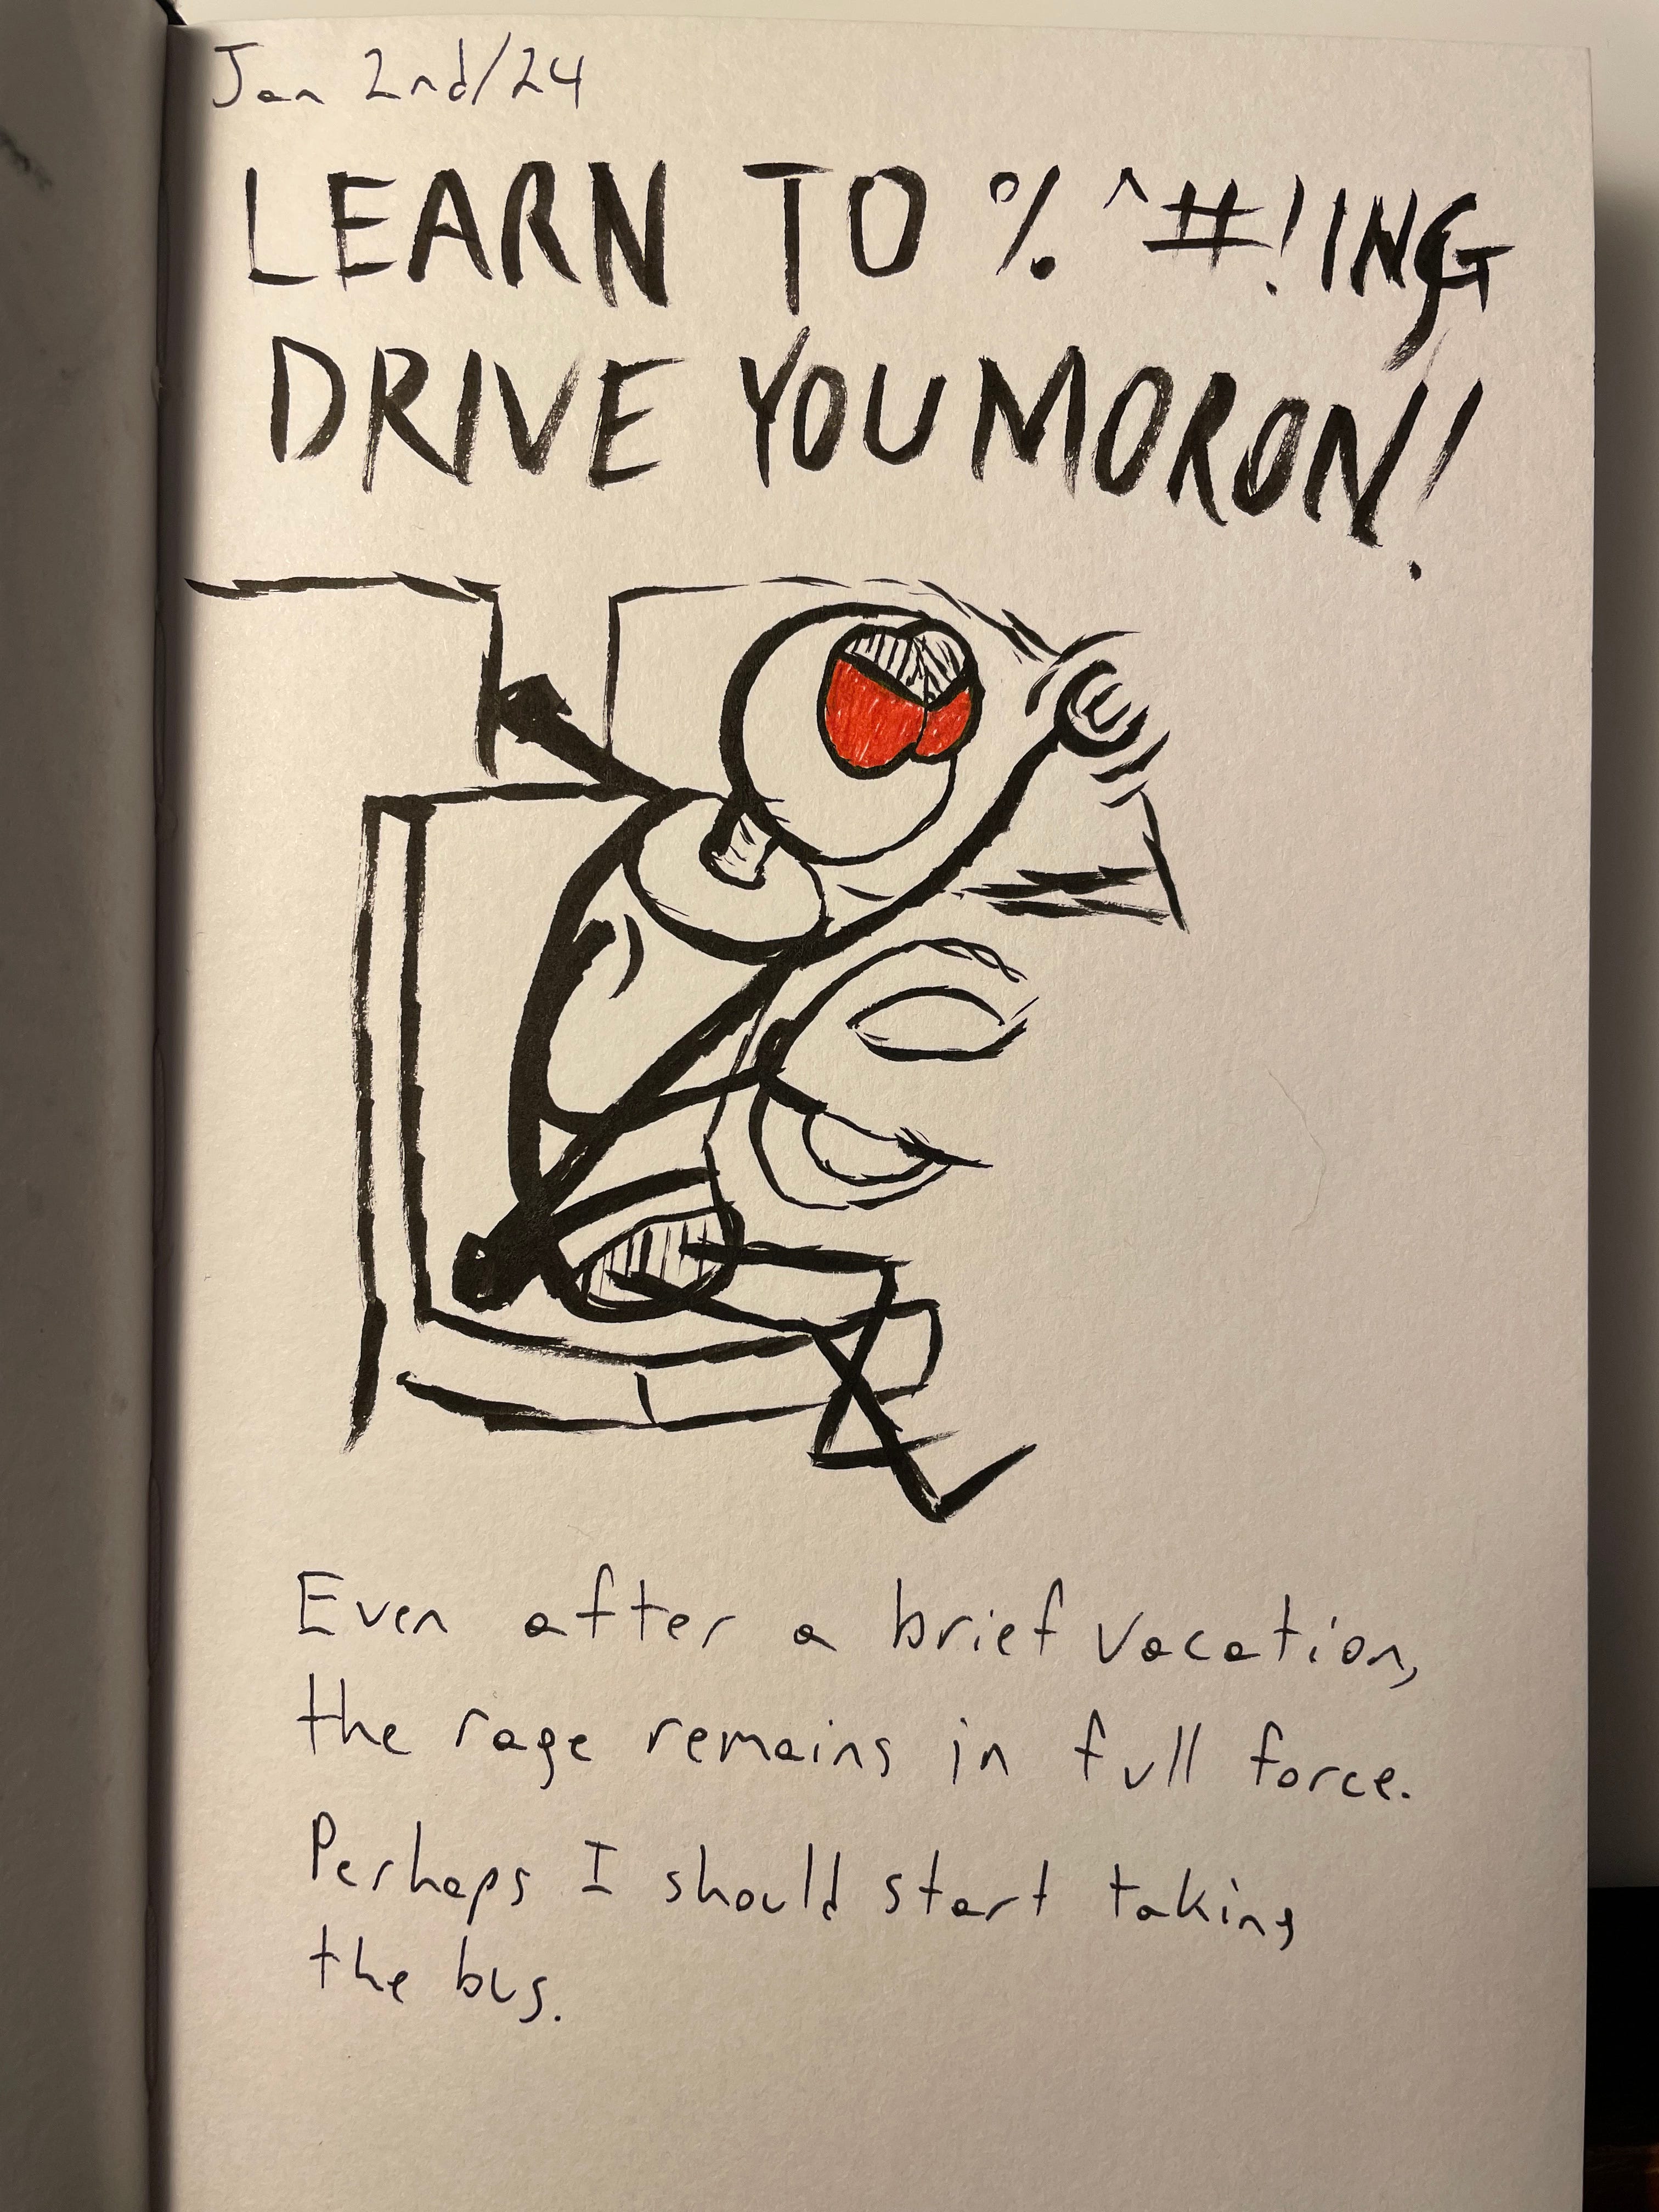 Jan 2nd/24
LEARN TO %^#!ING
DRIVE YOU MORON!
Even after a brief vacation,
the rage remains in full force.
Perhaps I should start taking
the bus.